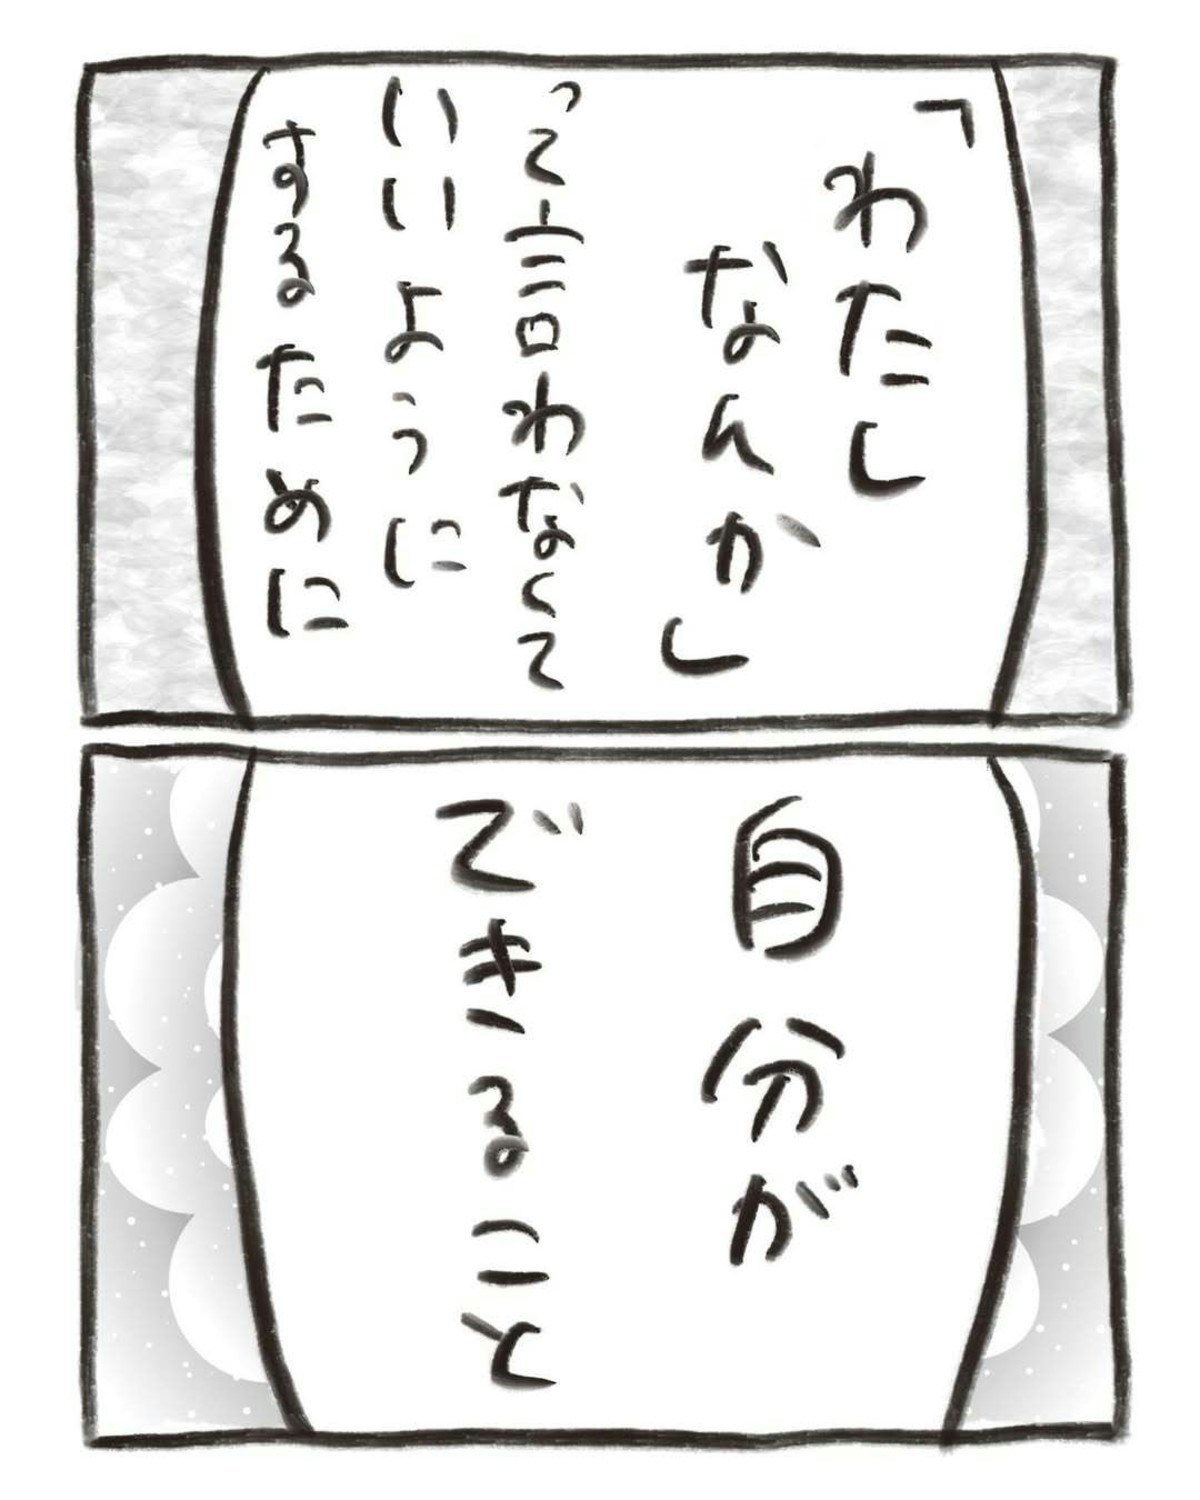 「わたし
なんか」
って言わなくて
いいように
するために
自分が
できること